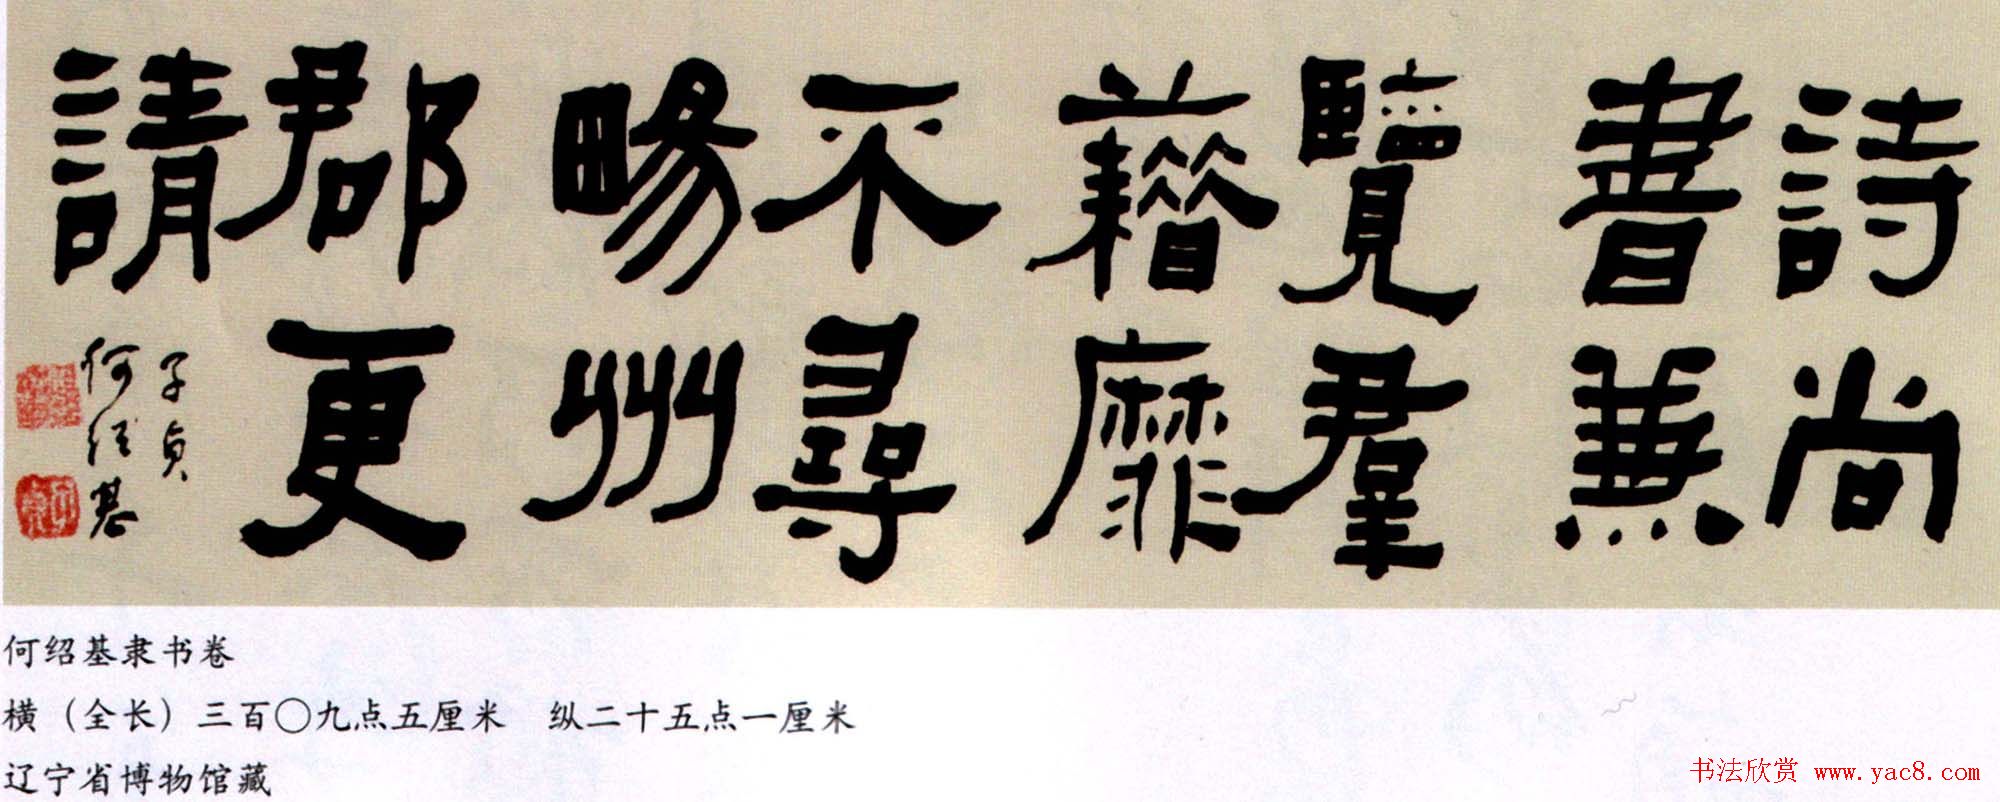 詩尚
書蒹
覽羣
藉靡
不尋
畼州
郡更
請
子貞
何紹基
何绍基隶书卷
横（全长）三百〇九点五厘米　纵二十五点一厘米
辽宁省博物馆藏
书法欣赏 www.yac8.com